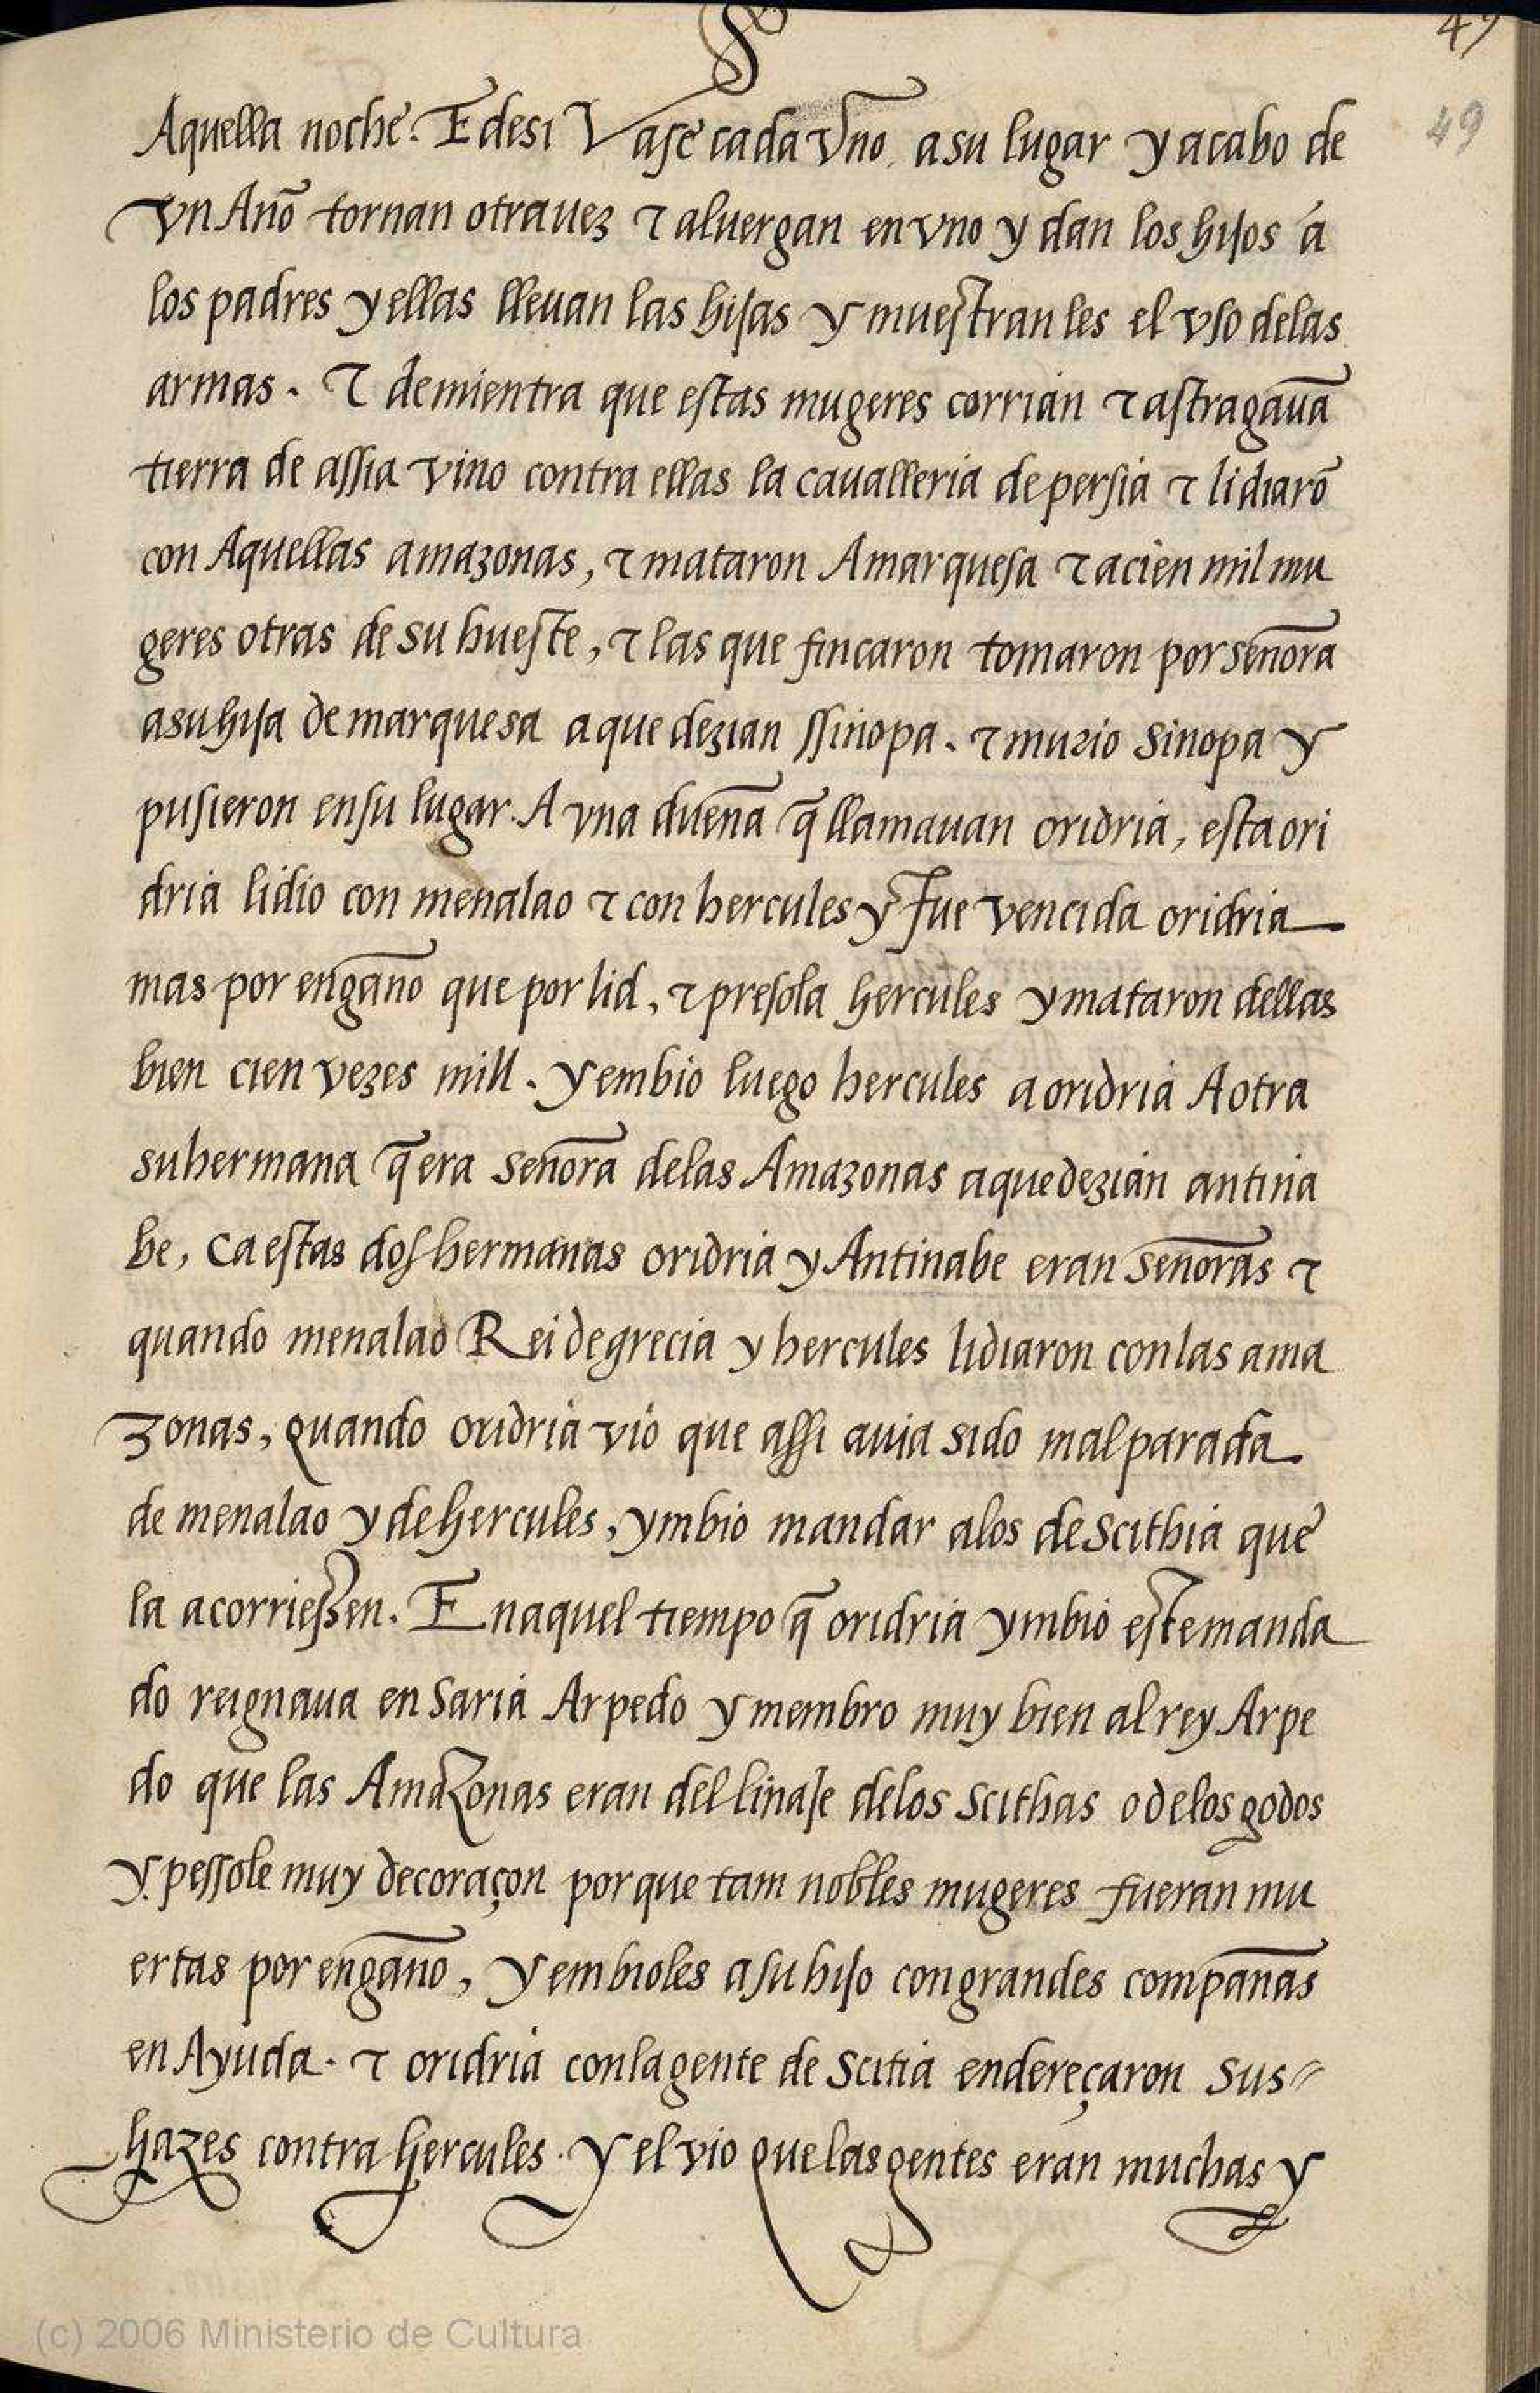 49
49
Aquella noche. E desi Vase cada vno. a su lugar y acabo de
vn Año tornan otra uez τ aluergan en vno y dan los hijos a
los padres y ellas lleuan las hijas y muestran les el vso de las
armas. τ demientra que estas mugeres corrian τ astragauã
tierra de assia vino contra ellas la caualleria de persia τ lidiarõ
con Aquellas amazonas, τ mataron Amarquesa τ acien mil mu
geres otras de su hueste, τ las que fincaron tomaron por señora
a su hija de marquesa a que dezian ssinopa. τ murio sinopa y
pusieron en su lugar. A vna dueña q̃ llamauan oridria, esta ori
dria lidio con menalao τ con hercules y fue vencida oridria
mas por engaño que por lid, τ presola hercules y mataron dellas
bien cien vezes mill. y embio luego hercules a oridria A otra
su hermana q̃ era señora delas Amazonas a que dezian antina
be, Ca estas dos hermanas oridria y Antinabe eran señoras τ
quando menalao Rei de grecia y hercules lidiaron con las ama
zonas, quando oridria vio que assi auia sido mal parada
de menalao y de hercules, ymbio mandar alos de scithia que
la acorriessen. En aquel tiempo q̃ oridria ymbio este manda
do reignaua en saria Arpedo y membro muy bien al rey Arpe
do que las AmaZonas eran del linaje delos scithas o delos godos
y. pessole muy de coraçon por que tam nobles mugeres fueran mu
ertas por engaño, y embioles a su hijo con grandes compañas
en Ayuda. τ oridria con la gente de scitia endereçaron sus
hazes contra hercules. y el vio que las gentes eran muchas y
(c) 2006 Ministerio de Cultura